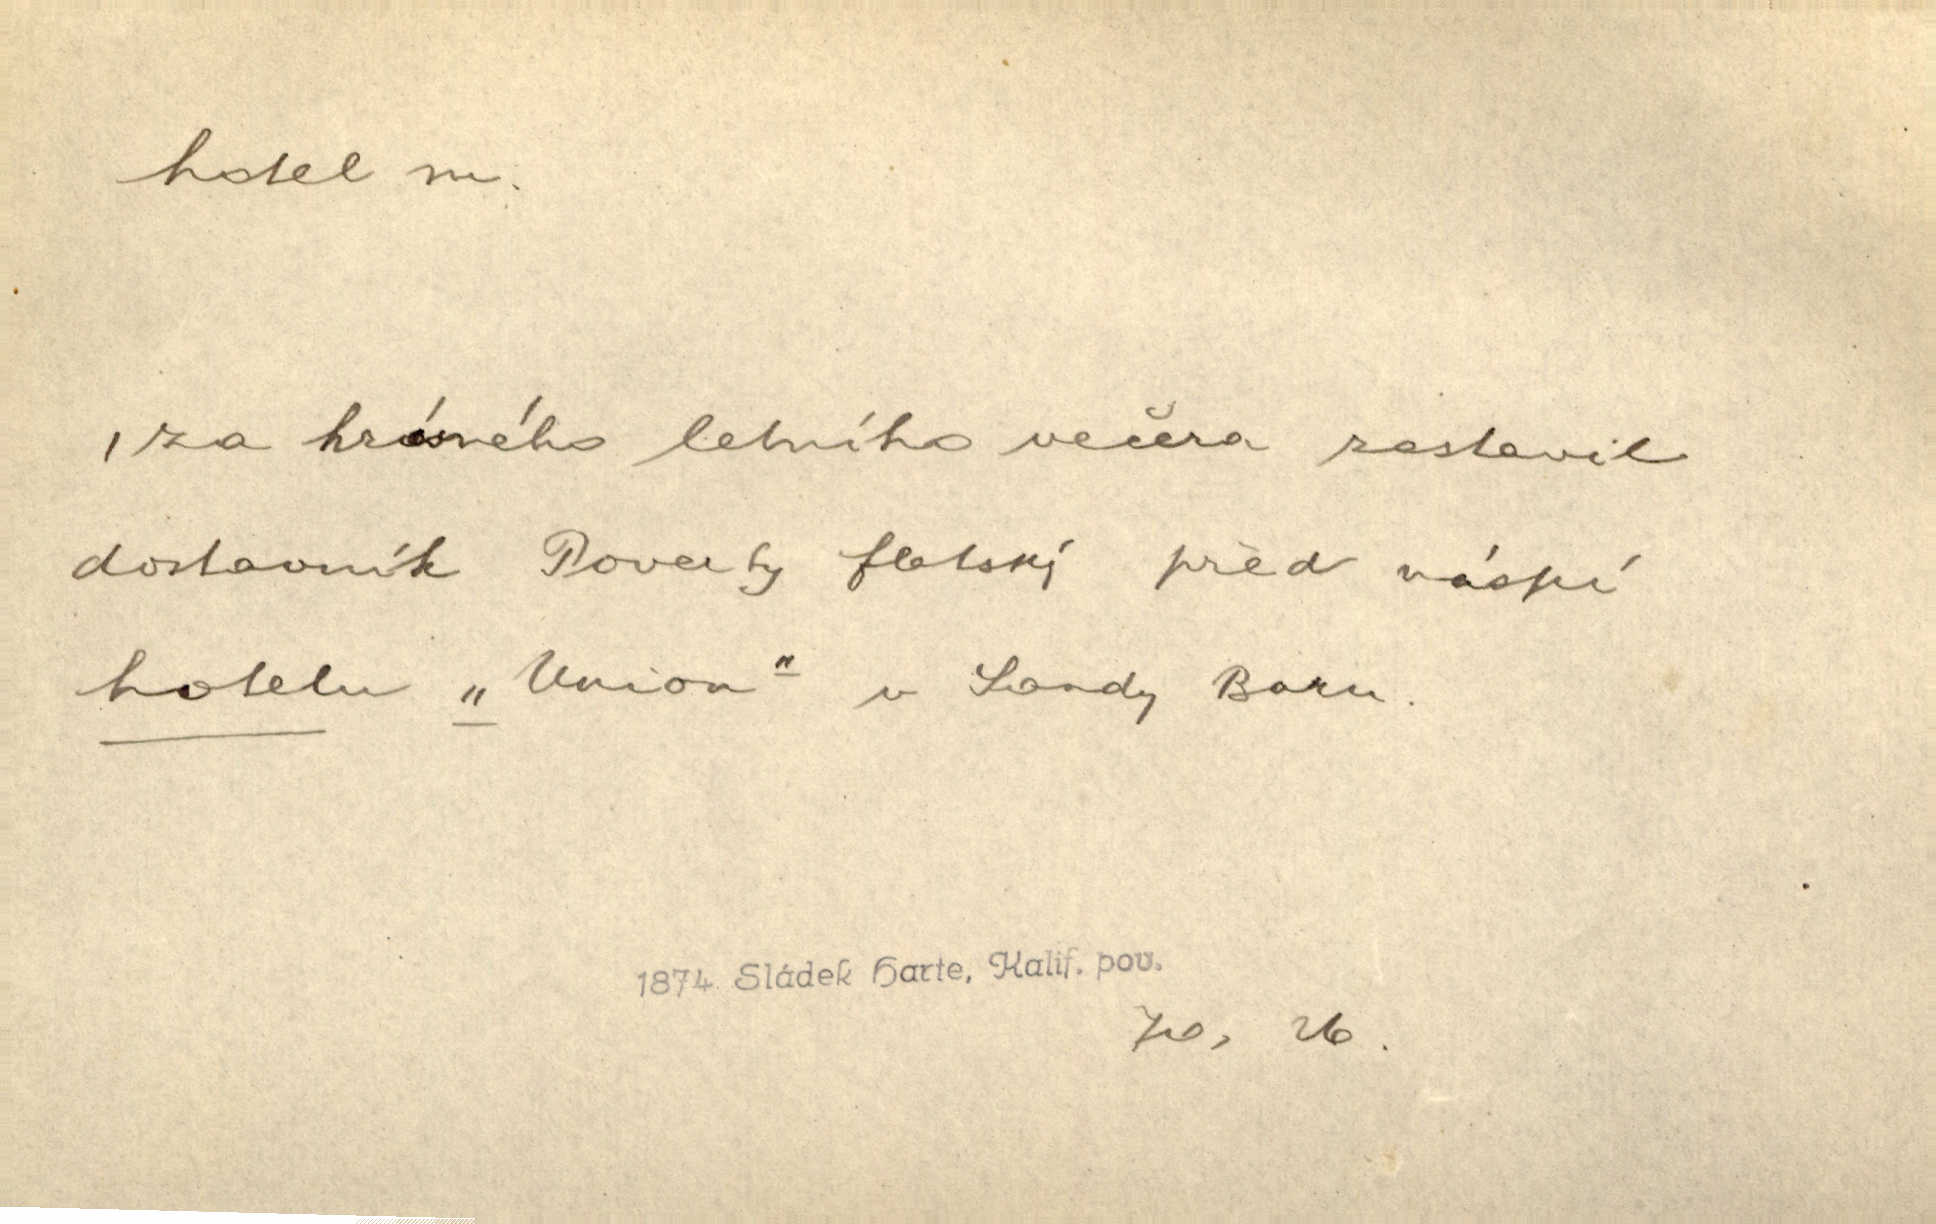 hotel m.
, za krásného letního večera zastavil
dostavník Poverty flatský před náspí
hotelu „Union" v Sandy Baru.
1874 Sládek Harte, Kalif. pov.
26.